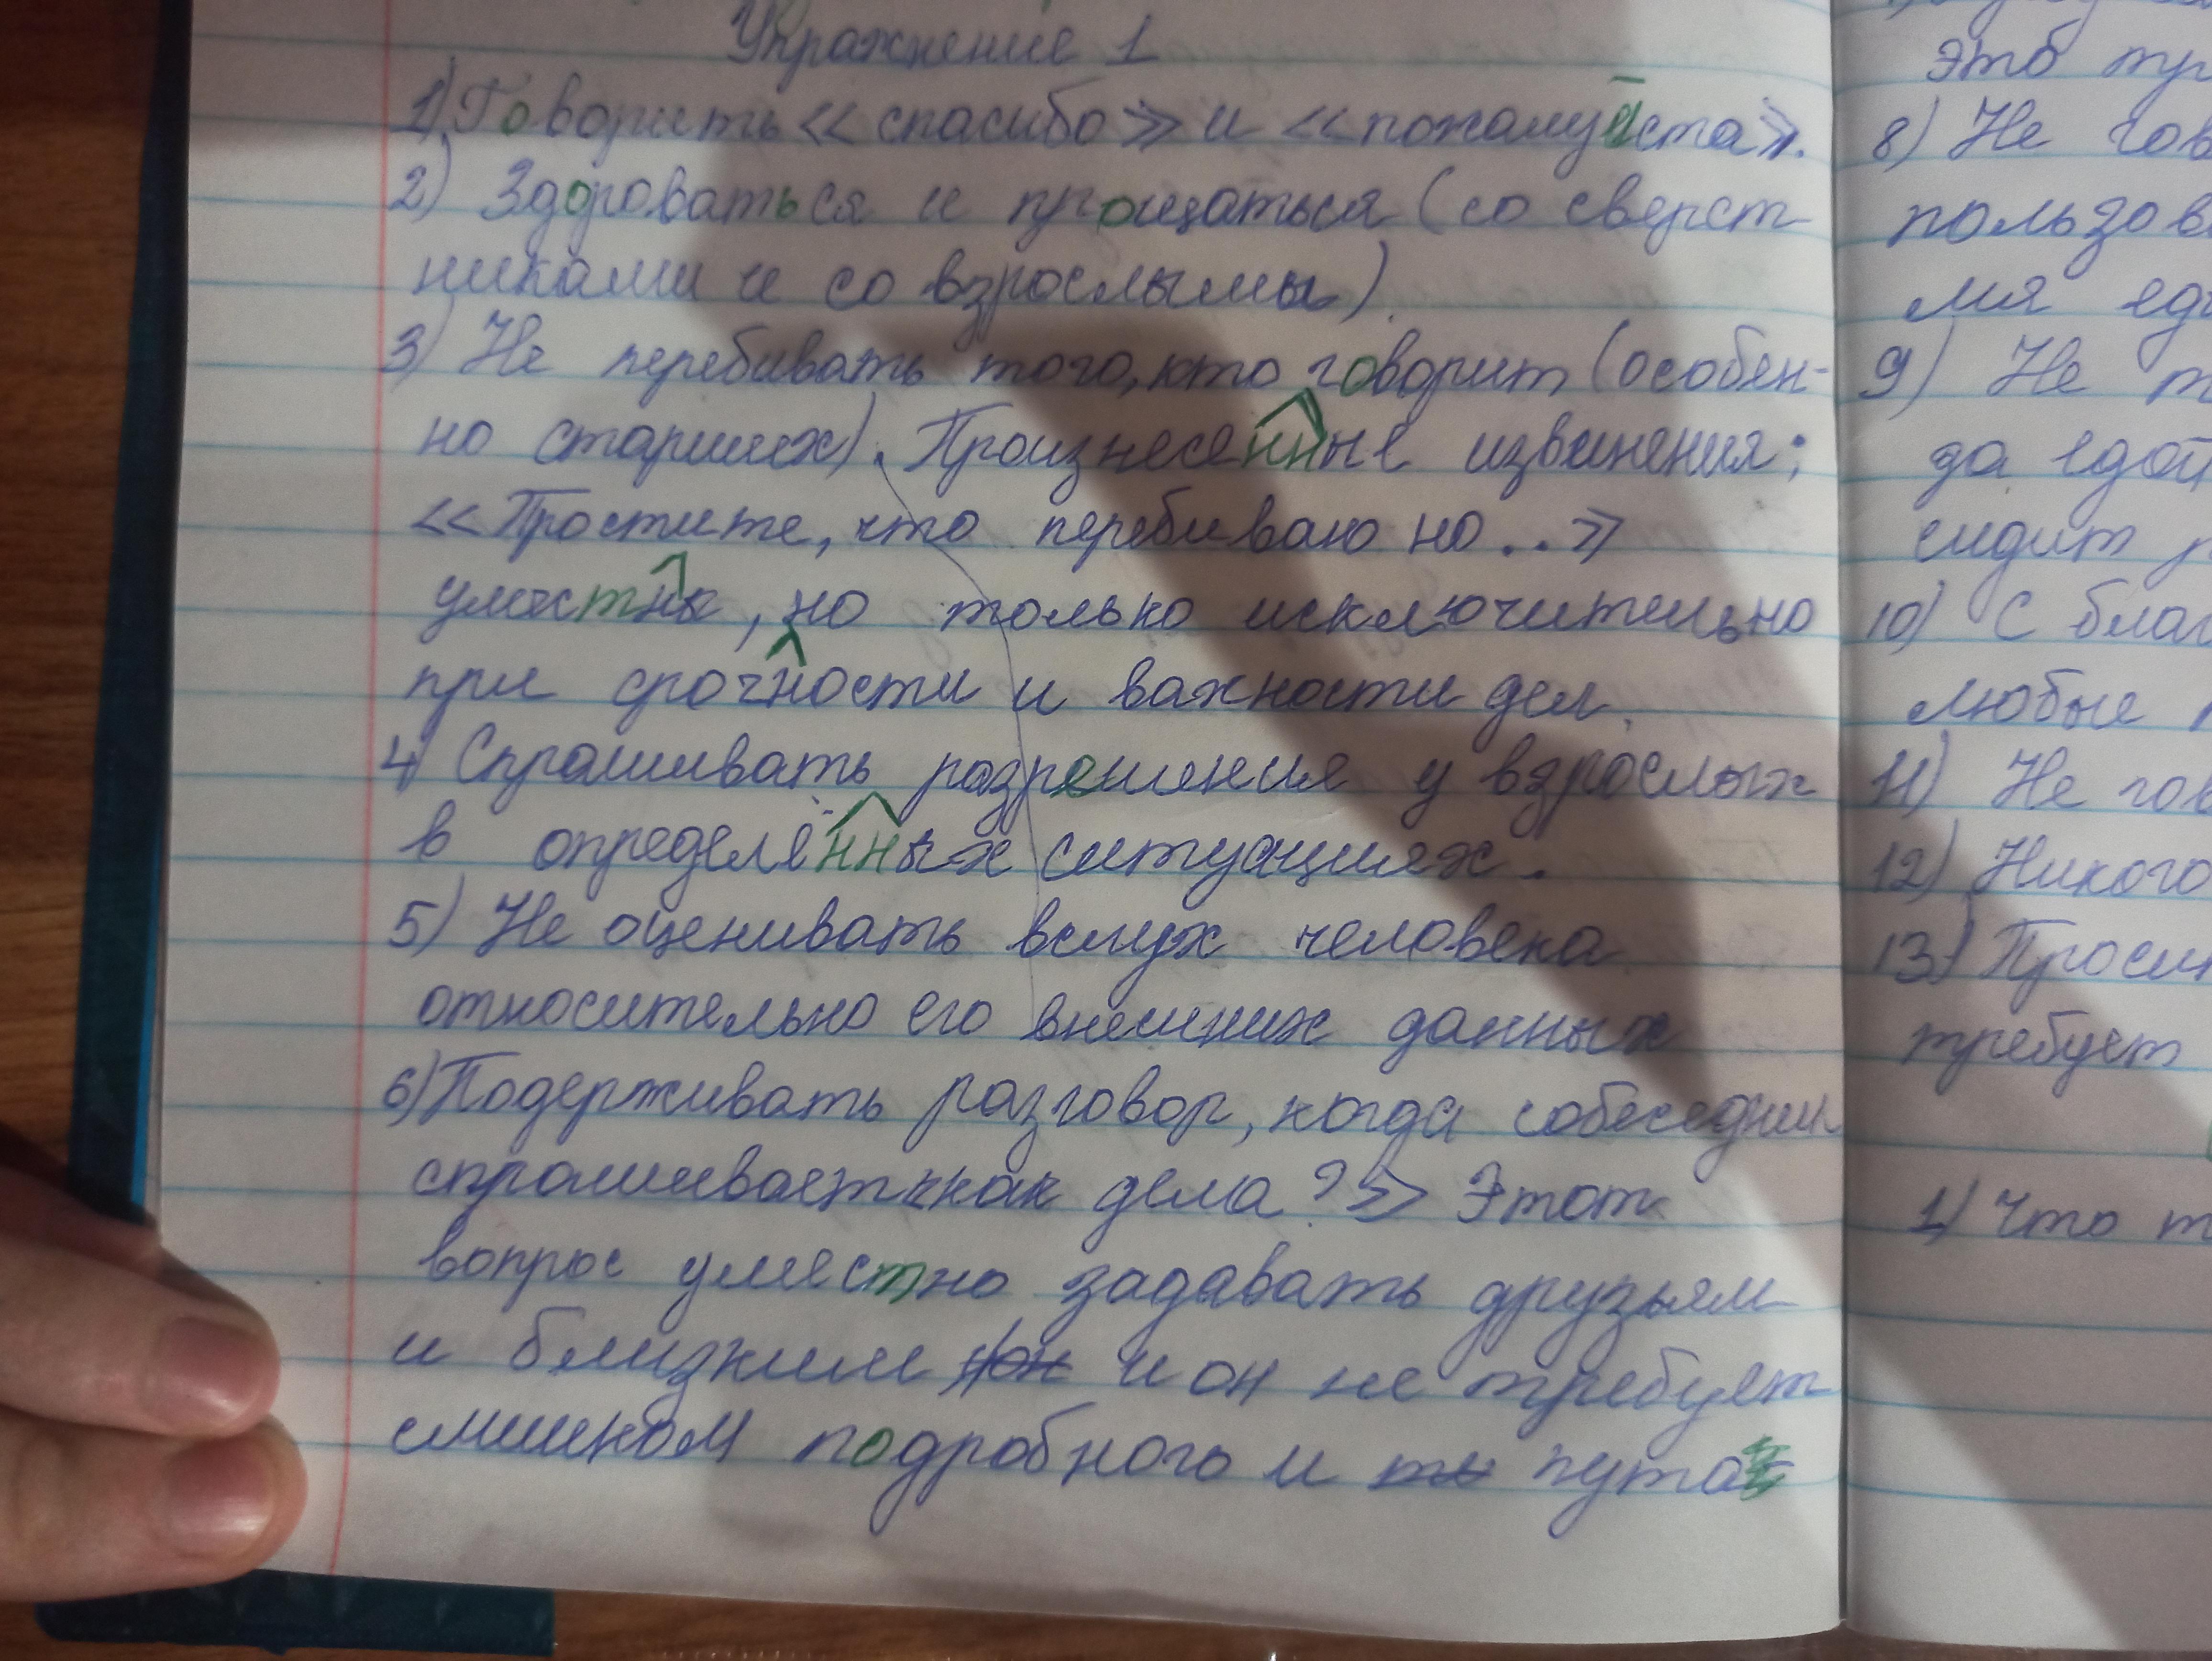 Упражнение 1
1) Говорить «спасибо» и «пожалуйста».
2) Здороваться и прощаться (со сверст-
никами и со взрослымы)
3) Не перебивать того, кто говорит (особен-
но старших). Произнесенные извинения:
«Простите, что перебиваю но...»
уместны, но только исключительно
при срочности и важности дел.
4) Спрашивать разрешения у взрослых
в определённых ситуациях.
5) Не оценивать вслух человека
относительно его внешних данных
6) Подерживать разговор, когда собеседник
спрашивает «как дела?» Этот
вопрос уместно задавать друзьям
и близким и он не требует
слишком подробного и пута
это
8) Не
пользов
мя
9) Не
да едой
сидит
10) С
любые
11) Не
12) Никого
13)
требует
1) Что